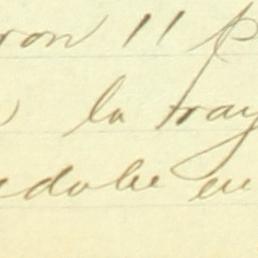 ron 11 p
la tray
adobe en